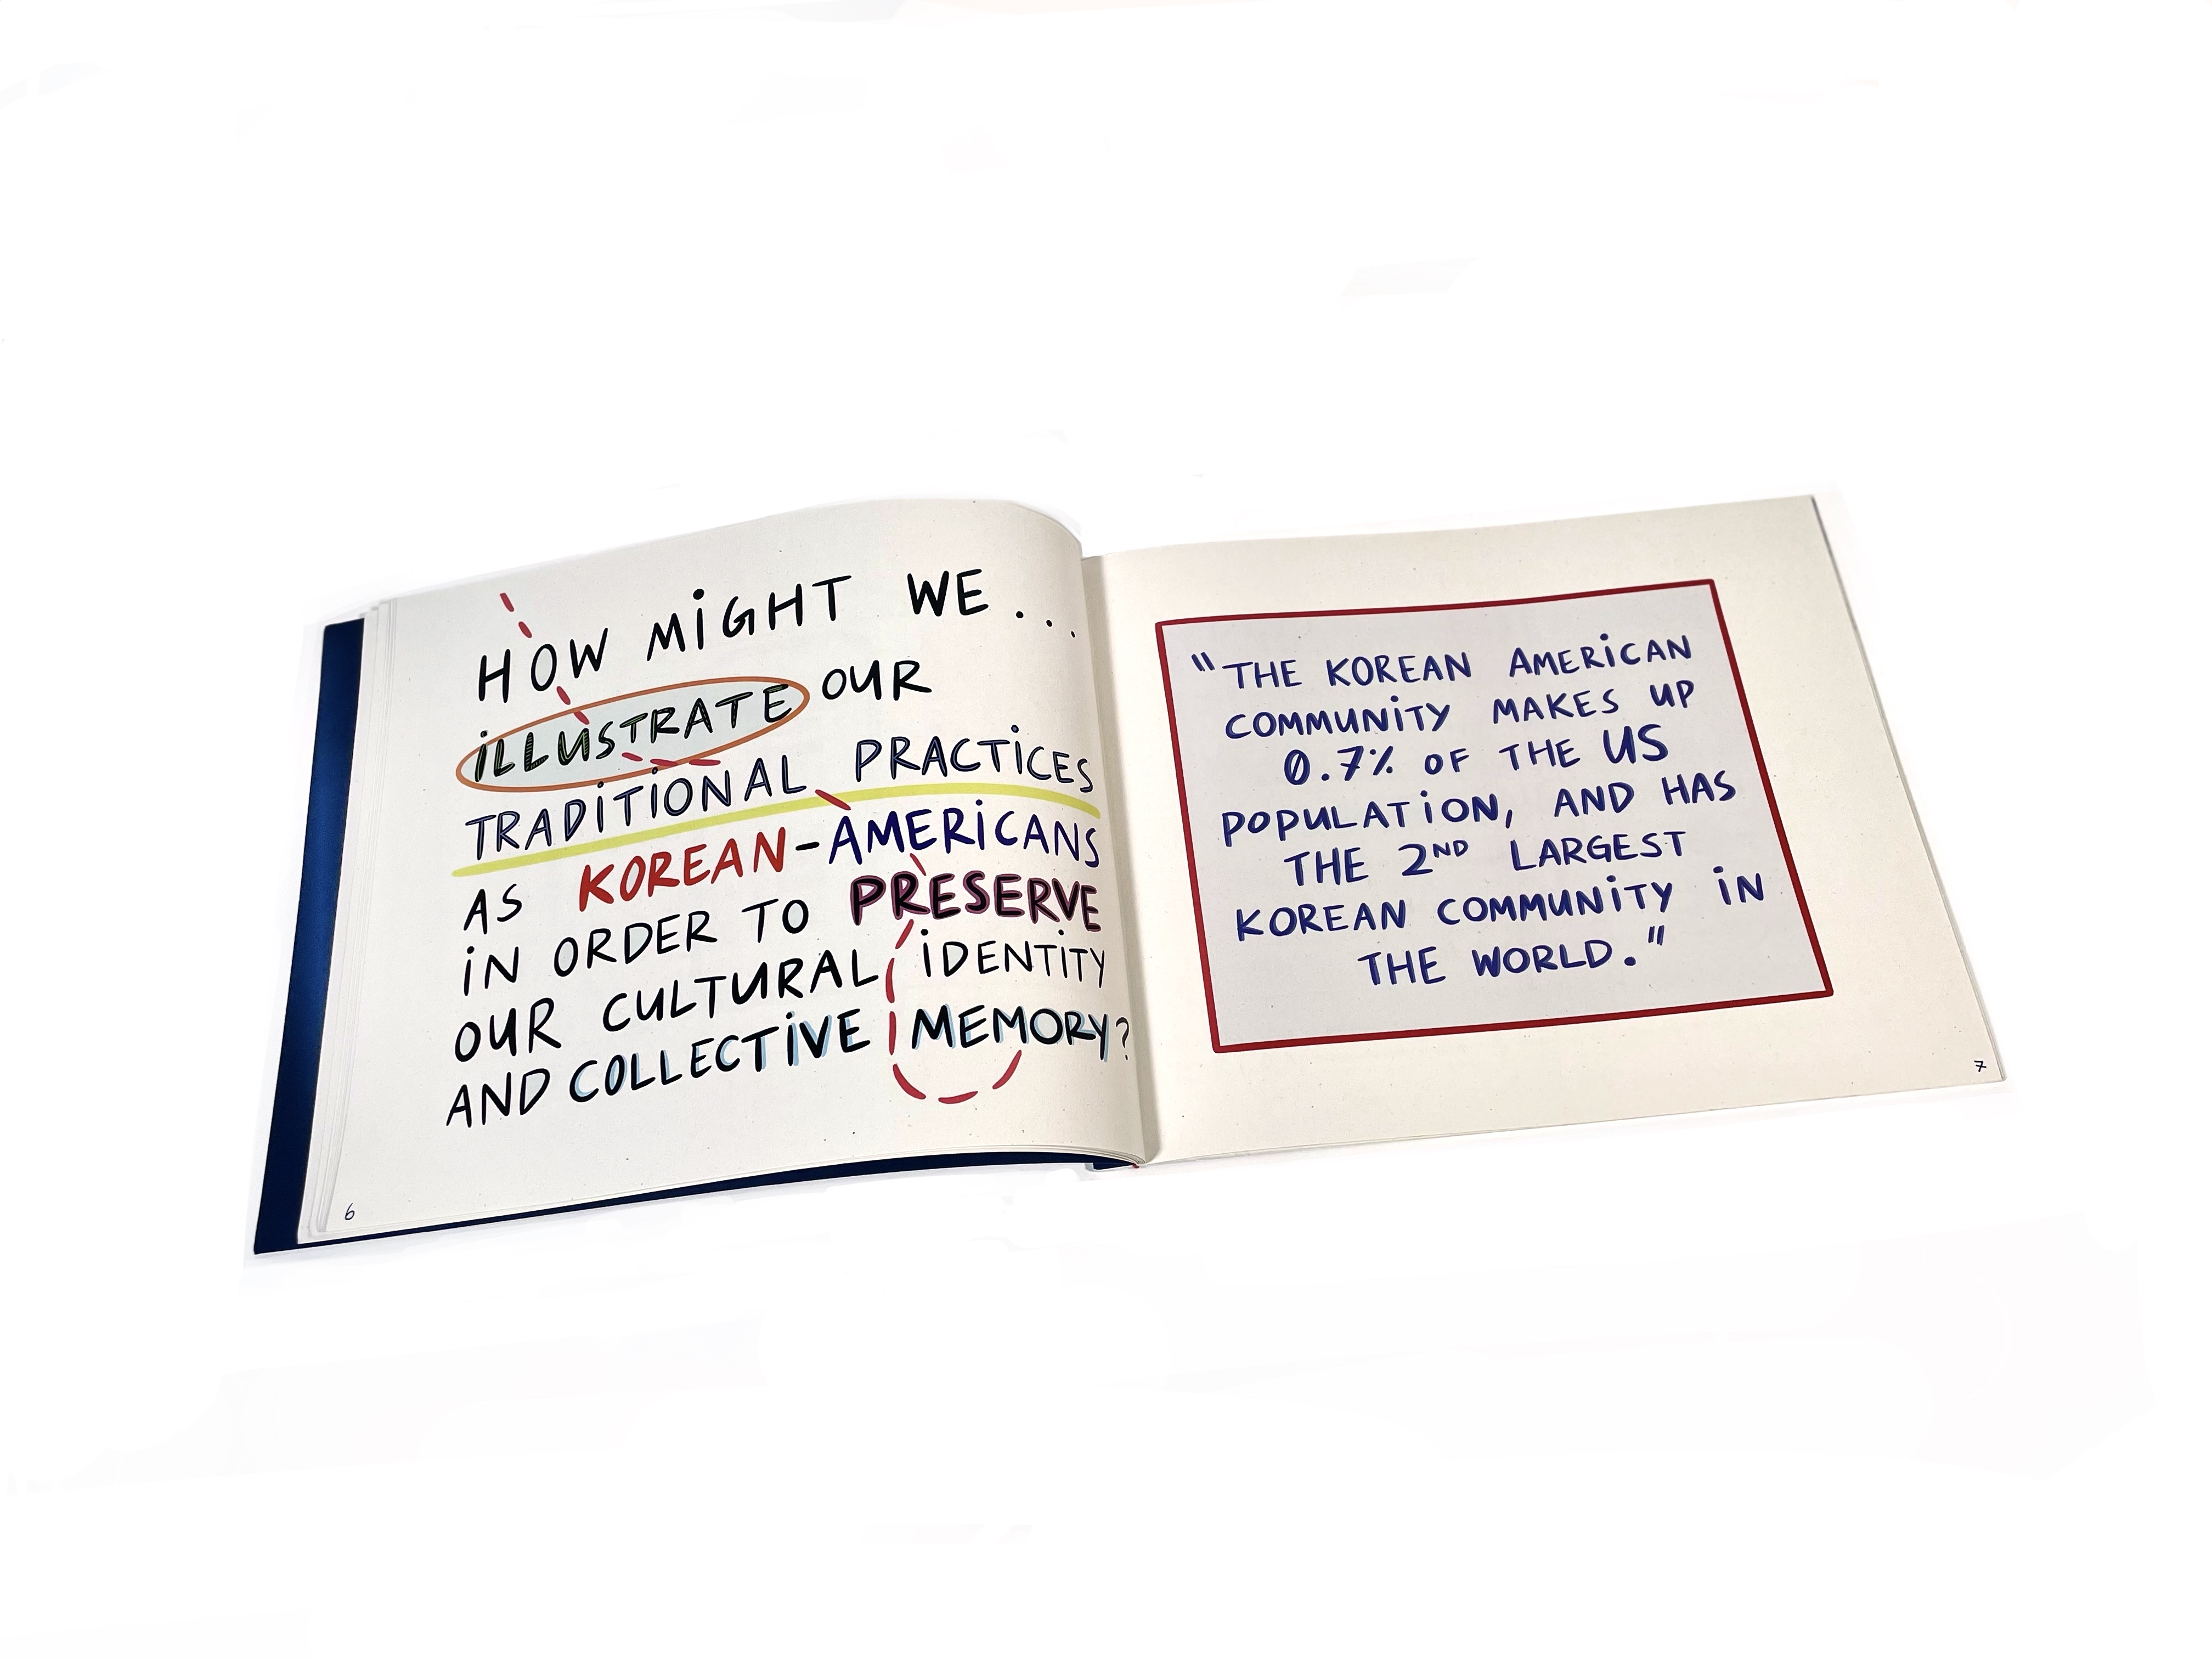 HOW MiGHT WE...
iLLUSTRATE OUR
TRADiTiONAL PRACTiCES
AS KOREAN-AMERiCANS
iN ORDER TO PRESERVE
OUR CULTURAL iDENTiTY
AND COLLECTiVE MEMORY?
6
"THE KOREAN AMERiCAN
COMMUNiTY MAKES UP
0.7% OF THE US
POPULATiON, AND HAS
THE 2ND LARGEST
KOREAN COMMUNiTY iN
THE WORLD."
7